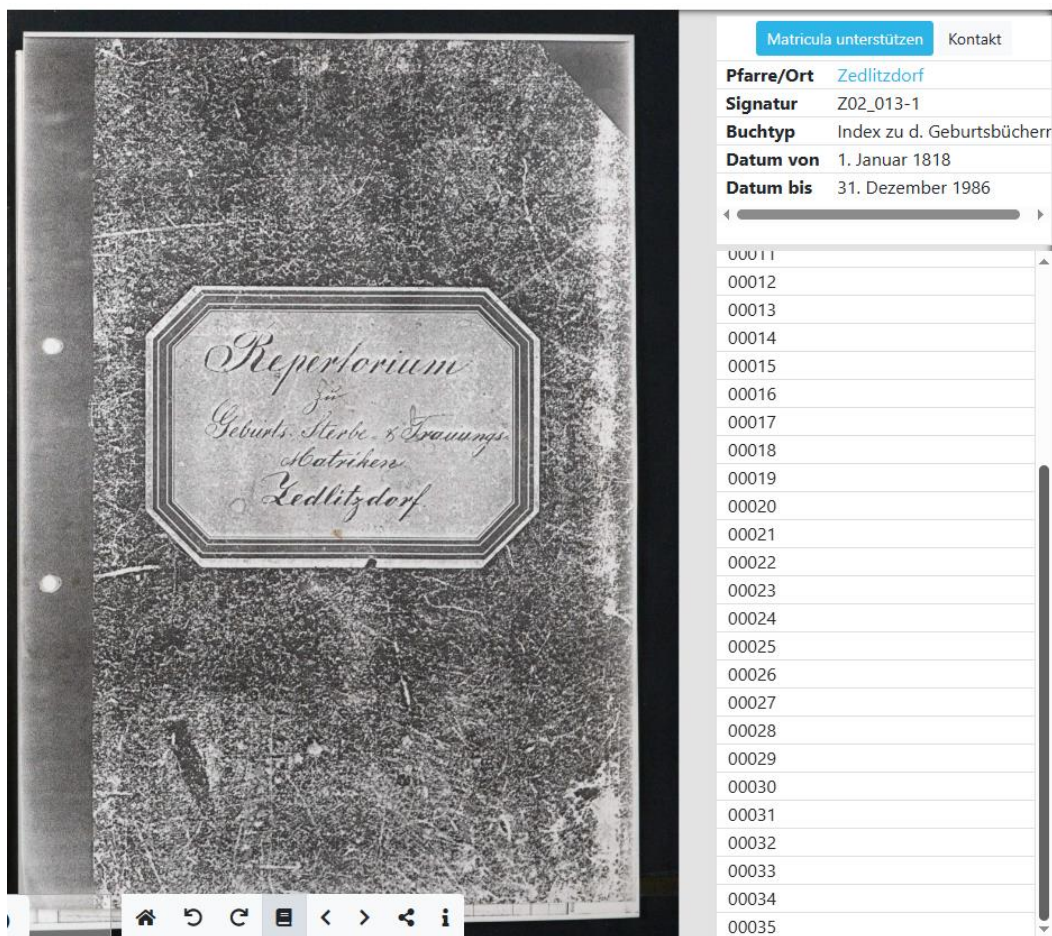 Repertorium
zu
Geburts- Sterbe- & Trauungs-
Matriken
Zedlitzdorf
Matricula unterstützen Kontakt
Pfarre/Ort Zedlitzdorf
Signatur Z02_013-1
Buchtyp Index zu d. Geburtsbücherr
Datum von 1. Januar 1818
Datum bis 31. Dezember 1986
00011
00012
00013
00014
00015
00016
00017
00018
00019
00020
00021
00022
00023
00024
00025
00026
00027
00028
00029
00030
00031
00032
00033
00034
00035